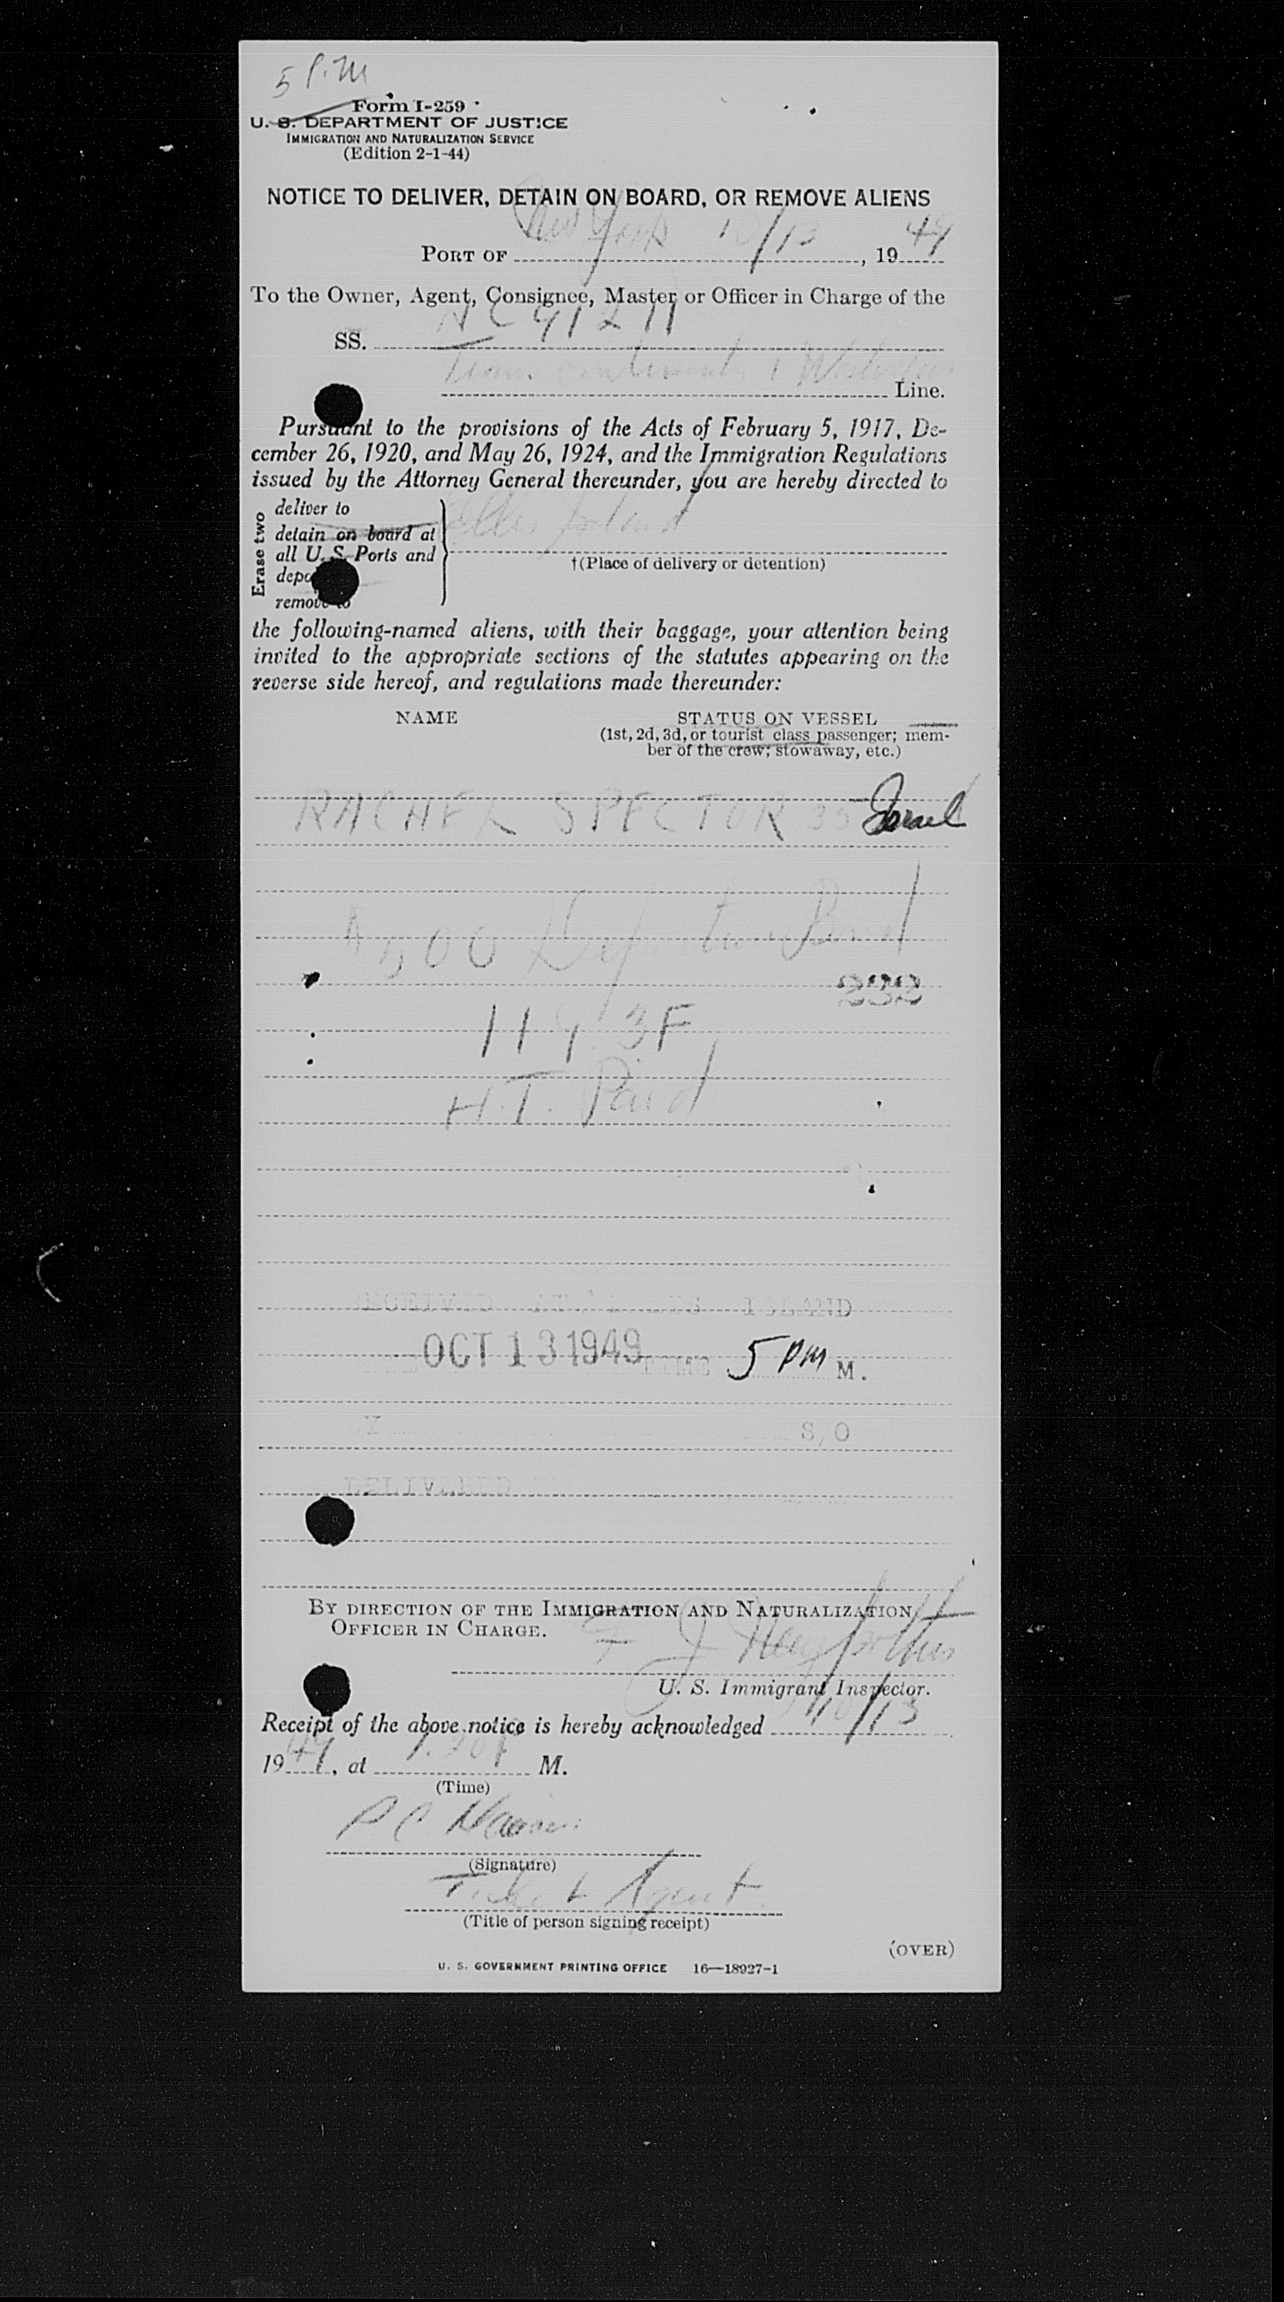 5 P.M
Form I-259
U. S. DEPARTMENT OF JUSTICE
IMMIGRATION AND NATURALIZATION SERVICE
(Edition 2-1-44)
NOTICE TO DELIVER, DETAIN ON BOARD, OR REMOVE ALIENS
PORT OF New York 10/13, 1949
To the Owner, Agent, Consignee, Master or Officer in Charge of the
SS. NC 91211
Transcontinental & Western Line.
Pursuant to the provisions of the Acts of February 5, 1917, De-
cember 26, 1920, and May 26, 1924, and the Immigration Regulations
issued by the Attorney General thereunder, you are hereby directed to
Erase two
deliver to
detain on board at
all U. S. Ports and
remove to
Ellis Island
†(Place of delivery or detention)
the following-named aliens, with their baggage, your attention being
invited to the appropriate sections of the statutes appearing on the
reverse side hereof, and regulations made thereunder:
NAME STATUS ON VESSEL
(1st, 2d, 3d, or tourist class passenger; mem-
ber of the crew; stowaway, etc.)
RACHEL SPECTOR 35 Israel
500 Departure Bond
232
3F
H.T. Paid
RECEIVED ISLAND
OCT 13 1949 TIME 5 PM M.
S/O
DELIVERED
BY DIRECTION OF THE IMMIGRATION AND NATURALIZATION
OFFICER IN CHARGE.
U. S. Immigrant Inspector.
Receipt of the above notice is hereby acknowledged 10/13
1949, at M.
(Time)
P C
(Signature)
Ticket Agent
(Title of person signing receipt)
(OVER)
U. S. GOVERNMENT PRINTING OFFICE 16—18927-1